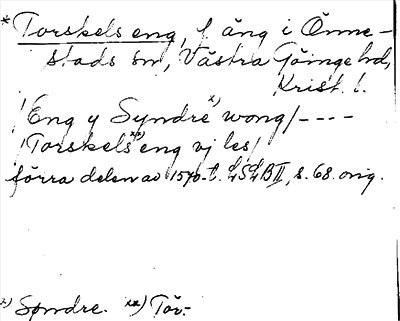 *Torskels eng, f. äng i Önne-
stads sn, Västra Göinge hd,
Krist. l.
/Eng y Syndre x) wong/----
/Torskels xx) eng vj les/
förra delen av 1570-t. LSLB II, s. 68. orig.
x) Søndre. xx) Tör-